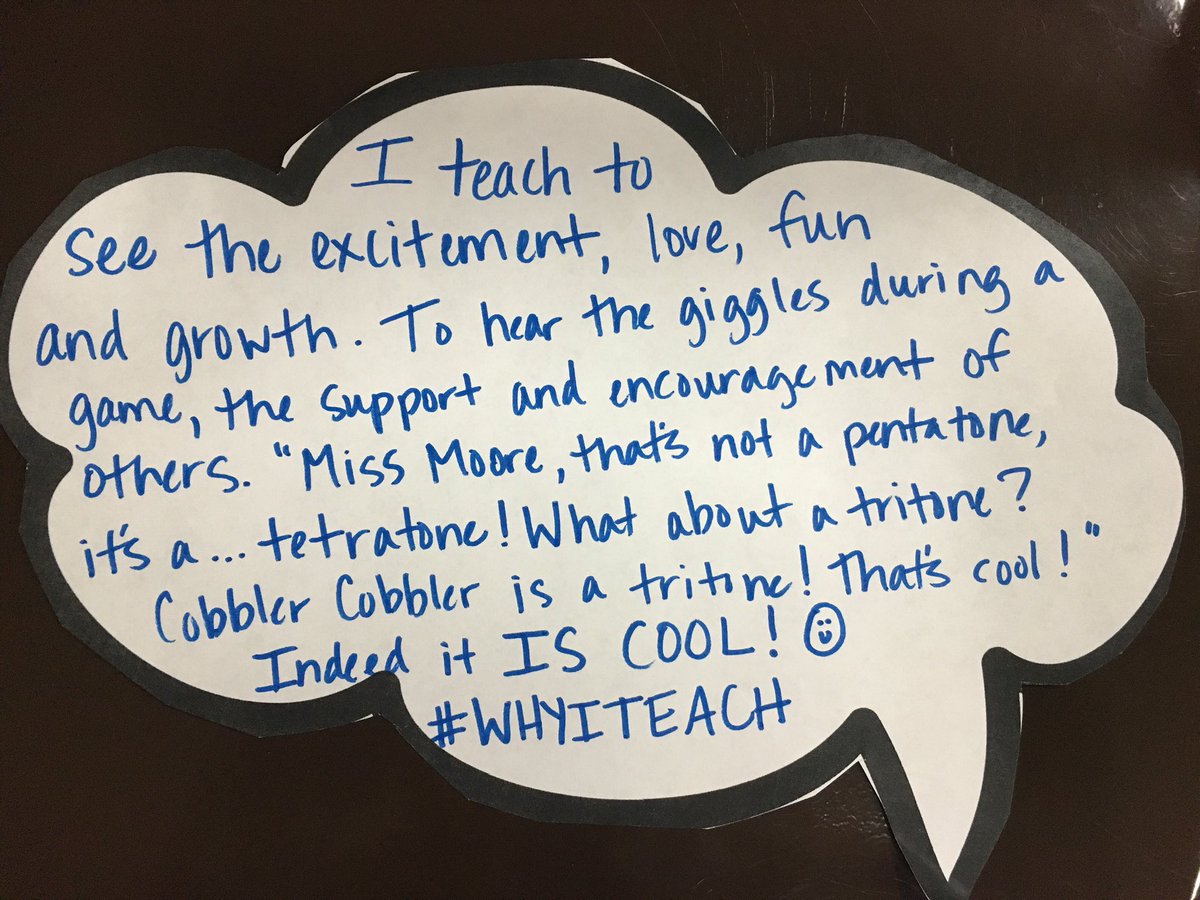 I teach to
see the excitement, love, fun
and growth. To hear the giggles during a
game, the support and encouragement of
others. "Miss Moore, that's not a pentatone,
it's a... tetratone! What about a tritone?
Cobbler Cobbler is a tritone! That's cool!"
Indeed it IS COOL! ☺
#WHYITEACH